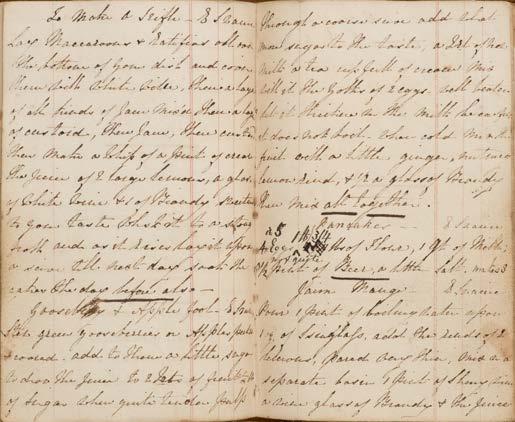 To Make a Trifle - E
Lay Maccaroons & Ratifias all over
the bottom of your dish and cover
them with White Wine, then a layer
of all kinds of Jam mix'd then a layer
of custard, then Jam, then custard
then Make a Whip of a pint of cream
the Juice of 2 large Lemons, a glass
of White Wine & 1 of Brandy sweeten
to your taste Whisk it to a strong
froth and as it rises lay it upon
a sieve till next day soak the
cakes the day before also -
Gooseberry & Apple fool - E
green Gooseberries or Apples
add to them a little sugar
to draw the Juice to 2 Qts of fruit
of Sugar when quite tender pulp
through a coarse sieve add what
more sugar to the taste, a Qt of New
Milk a tea cup full of cream Mix
with it the Yolks of 2 eggs well beaten
let it thicken in the Milk be careful
it does not boil when cold Mix the
fruit with a little ginger, nutmeg
lemon rind, & 1/2 a glass of Brandy
then mix all together.
Pancakes - E
4 Eggs of Flour, 1 pt of Milk
1/2 pint of Beer, a little Salt, makes
Jaun Mange E
Pour 1 pint of boiling water upon
of Isinglass, add the rinds of 2
Lemons, Pared very thin, Mix in a
separate basin 1 pint of Sherry wine
a wine glass of Brandy & the Juice